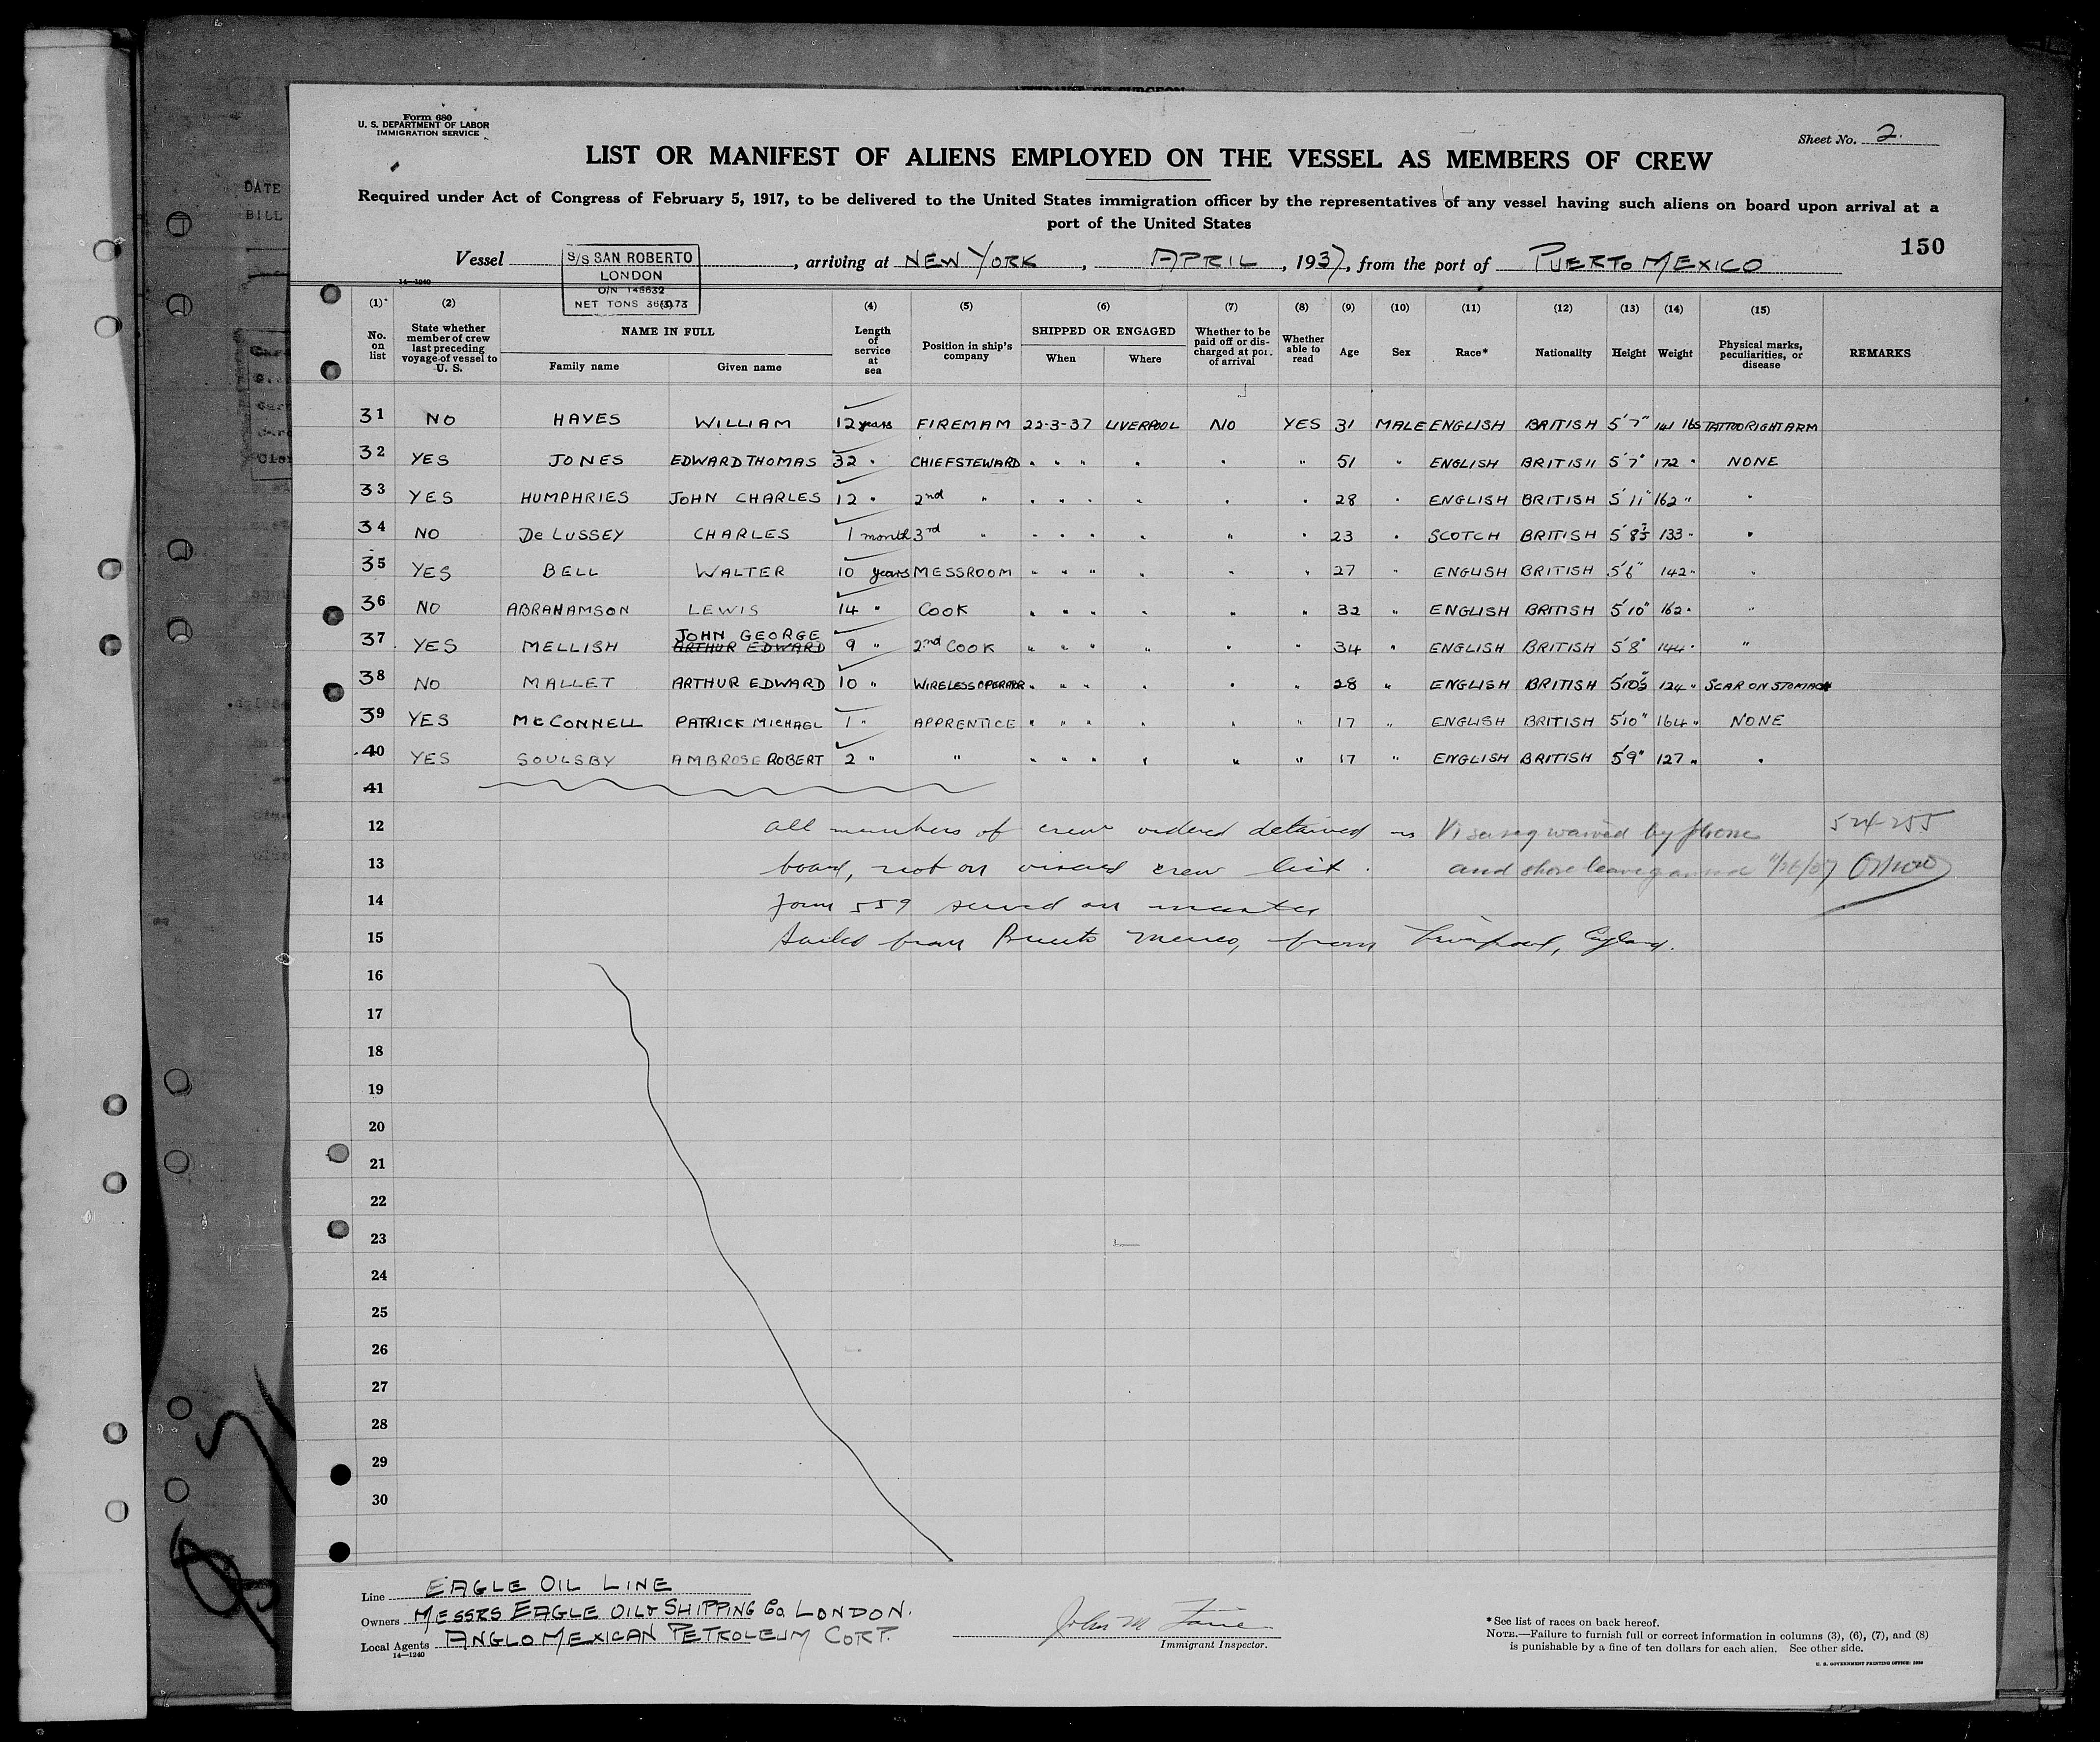 Form 680
U. S. DEPARTMENT OF LABOR
IMMIGRATION SERVICE
Sheet No. 2.
LIST OR MANIFEST OF ALIENS EMPLOYED ON THE VESSEL AS MEMBERS OF CREW
Required under Act of Congress of February 5, 1917, to be delivered to the United States immigration officer by the representatives of any vessel having such aliens on board upon arrival at a
port of the United States
150
Vessel S/S SAN ROBERTO, arriving at NEW YORK, APRIL, 1937, from the port of PUERTO MEXICO
LONDON
O/N 148632
NET TONS
14—1240
(1) (2) (3) (4) (5) (6) (7) (8) (9) (10) (11) (12) (13) (14) (15)
No. on list State whether member of crew last preceding voyage of vessel to U. S. NAME IN FULL Family name Given name Length of service at sea Position in ship's company SHIPPED OR ENGAGED When Where Whether to be paid off or discharged at port of arrival Whether able to read Age Sex Race* Nationality Height Weight Physical marks, peculiarities, or disease REMARKS
31 NO HAYES WILLIAM 12 years FIREMAM 22-3-37 LIVERPOOL NO YES 31 MALE ENGLISH BRITISH 5'7" 141 lbs TATTOO RIGHT ARM
32 YES JONES EDWARD THOMAS 32 " CHIEF STEWARD " " " " " " 51 " ENGLISH BRITISH 5'7" 172 " NONE
33 YES HUMPHRIES JOHN CHARLES 12 " 2nd " " " " " " " 28 " ENGLISH BRITISH 5'11" 162 " "
34 NO De LUSSEY CHARLES 1 month 3rd " " " " " " " 23 " SCOTCH BRITISH 5'8 133 " "
35 YES BELL WALTER 10 years MESSROOM " " " " " " 27 " ENGLISH BRITISH 5'6" 142 " "
36 NO ABRAHAMSON LEWIS 14 " COOK " " " " " " 32 " ENGLISH BRITISH 5'10" 162 " "
37 YES MELLISH JOHN GEORGE ARTHUR EDWARD 9 " 2nd COOK " " " " " " 34 " ENGLISH BRITISH 5'8" 144 " "
38 NO MALLET ARTHUR EDWARD 10 " WIRELESS OPERATOR " " " " " " 28 " ENGLISH BRITISH 5'10½ 124 " SCAR ON STOMACH
39 YES McCONNELL PATRICK MICHAEL 1 " APPRENTICE " " " " " " 17 " ENGLISH BRITISH 5'10" 164 " NONE
40 YES SOULSBY AMBROSE ROBERT 2 " " " " " " " " 17 " ENGLISH BRITISH 5'9" 127 " "
41
12 all members of crew ordered detained on Visa req waived by phone 524-255
13 board, not on visaed crew list. and shore leave granted
14 Form 559 served on master
15 Sailed from Puerto Mexico, from Liverpool, England.
16
17
18
19
20
21
22
23
24
25
26
27
28
29
30
Line EAGLE OIL LINE
Owners MESSRS EAGLE OIL & SHIPPING Co. LONDON.
Local Agents ANGLO MEXICAN PETROLEUM CORP.
14—1240
John M
Immigrant Inspector.
*See list of races on back hereof.
NOTE.—Failure to furnish full or correct information in columns (3), (6), (7), and (8)
is punishable by a fine of ten dollars for each alien. See other side.
U. S. GOVERNMENT PRINTING OFFICE
DATE
BILL